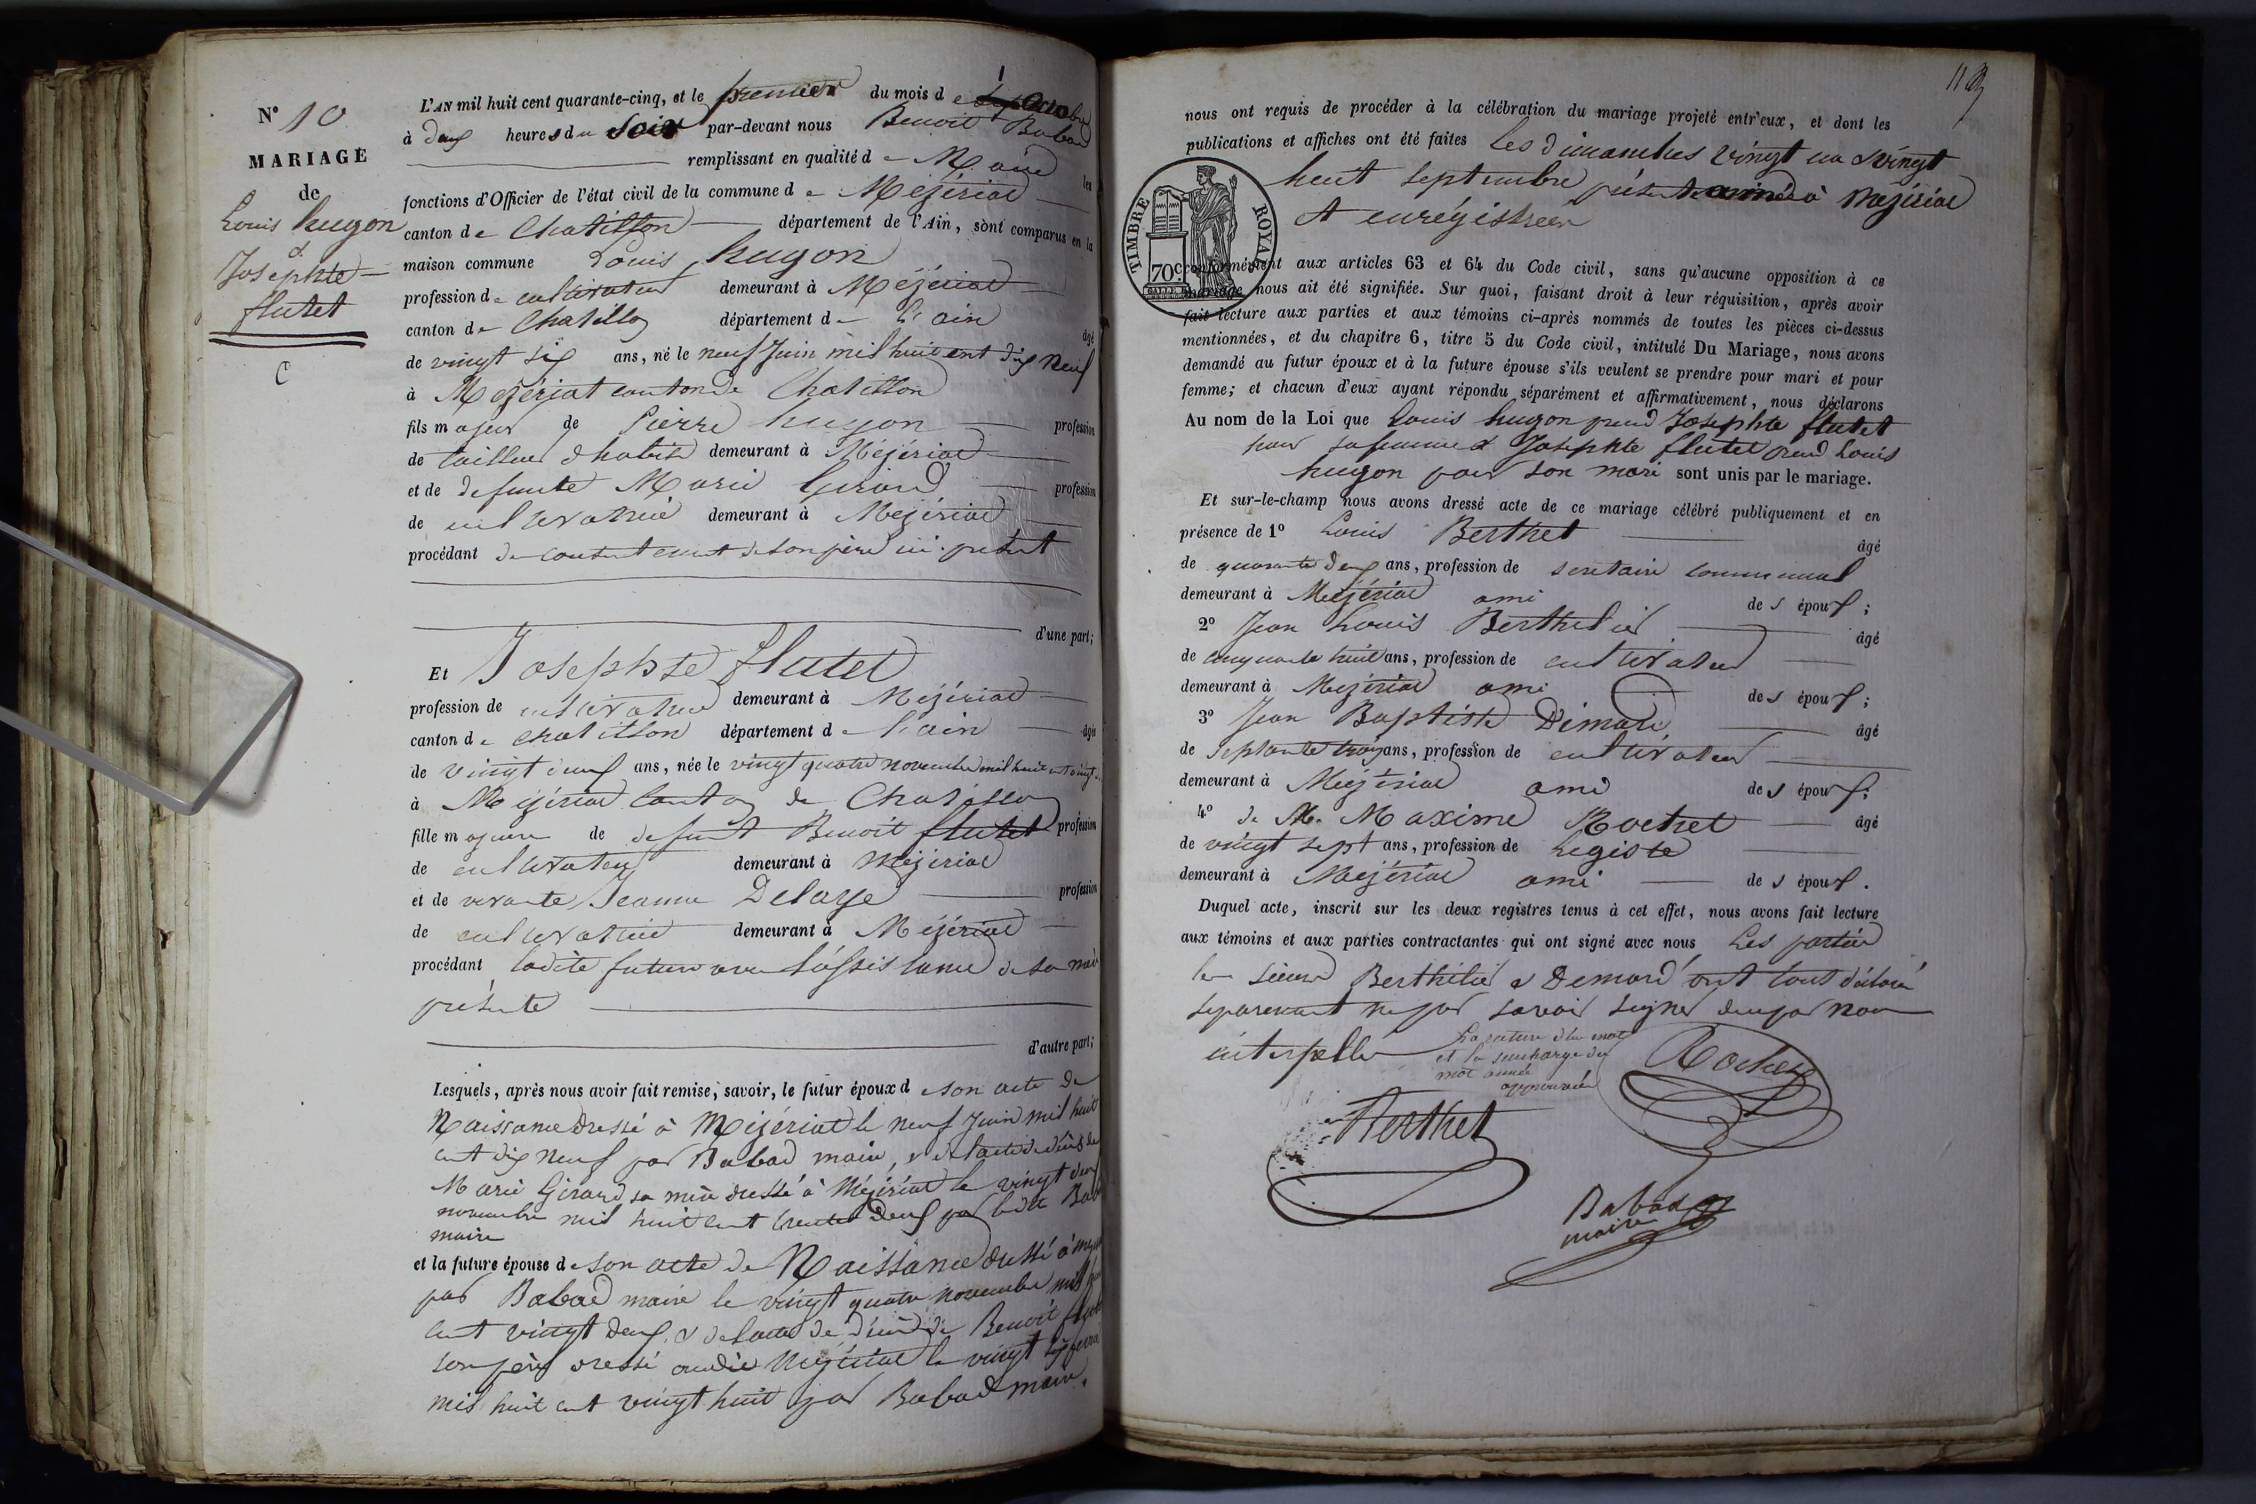 N° 10
MARIAGE
de
Louis hugon
&
Josephte
flutet
C
L'AN mil huit cent quarante-cinq, et le premier du mois de octobre
à deux heures du Soir par-devant nous Benoit Babad
remplissant en qualité de Maire les
fonctions d'Officier de l'état civil de la commune de Mézériat
canton de Chatillon département de l'Ain, sont comparus en la
maison commune Louis hugon
profession de cultivateur demeurant à Mézériat
canton de Chatillon département de l'ain âgé
de vingt six ans, né le neuf Juin mil huit cent dix neuf
à Mezériat canton de Chatillon
fils majeur de Pierre hugon profession
de tailleur d'habits demeurant à Mézériat
et de defunte Marie Girard profession
de cultivatrice demeurant à Mézériat
procédant du consentement de son père ici présent
d'une part;
Et Josephte flutet
profession de cultivatrice demeurant à Mézériat
canton de chatillon département de l'ain âgée
de vingt deux ans, née le vingt quatre novembre mil huit cent vingt
à Mézériat canton de Chatillon
fille majeure de defunt Benoit flutet profession
de cultivateur demeurant à Mézériat
et de vivante Jeanne Delaye profession
de cultivatrice demeurant à Mézériat
procédant ladite future avec l'assistance de sa mère
présente
d'autre part;
Lesquels, après nous avoir fait remise, savoir, le futur époux de son acte de
Naissance dressé à Mézériat le neuf Juin mil huit
cent dix neuf par Babad maire, & de l'acte de décès de
Marie Girard sa mère dressé à Mézériat le vingt deux
novembre mil huit cent trente deux par ledit Bab
maire
et la future épouse de son acte de Naissance dressé à
par Babad maire le vingt quatre novembre mil
cent vingt deux & de l'acte de décès de Benoit
son père dressé audit Mézériat le vingt six
mil huit cent vingt huit par Babad maire.
nous ont requis de procéder à la célébration du mariage projeté entr'eux, et dont les
publications et affiches ont été faites Les dimanches vingt un & vingt
huit septembre présente année à Mézériat
et enrégistrées
TIMBRE ROYAL
70 c
conformément aux articles 63 et 64 du Code civil, sans qu'aucune opposition à ce
mariage nous ait été signifiée. Sur quoi, faisant droit à leur réquisition, après avoir
fait lecture aux parties et aux témoins ci-après nommés de toutes les pièces ci-dessus
mentionnées, et du chapitre 6, titre 5 du Code civil, intitulé Du Mariage, nous avons
demandé au futur époux et à la future épouse s'ils veulent se prendre pour mari et pour
femme; et chacun d'eux ayant répondu séparément et affirmativement, nous déclarons
Au nom de la Loi que Louis hugon prend Josephte flutet
pour sa femme & Josephte flutet prend Louis
hugon pour son mari sont unis par le mariage.
Et sur-le-champ nous avons dressé acte de ce mariage célébré publiquement et en
présence de 1° Louis Berthet âgé
de quarante deux ans, profession de secretaire communal
demeurant à Mézériat ami des époux;
2° Jean Louis Berthelier âgé
de cinquante huit ans, profession de cultivateur
demeurant à Mézériat ami des époux;
3° Jean Baptiste Démard âgé
de septante trois ans, profession de cultivateur
demeurant à Mézériat ami des époux;
4° de M. Maxime Rochet âgé
de vingt sept ans, profession de Legiste
demeurant à Mézériat ami des époux.
Duquel acte, inscrit sur les deux registres tenus à cet effet, nous avons fait lecture
aux témoins et aux parties contractantes qui ont signé avec nous Les parties
les sieurs Berthelier & Demard ont tout déclaré
separement ne pas savoir signer deux par nous
interpellés
La rature d'un mot
et la surcharge du
mot année
approuvées
Rochet
Berthet
Babad
maire